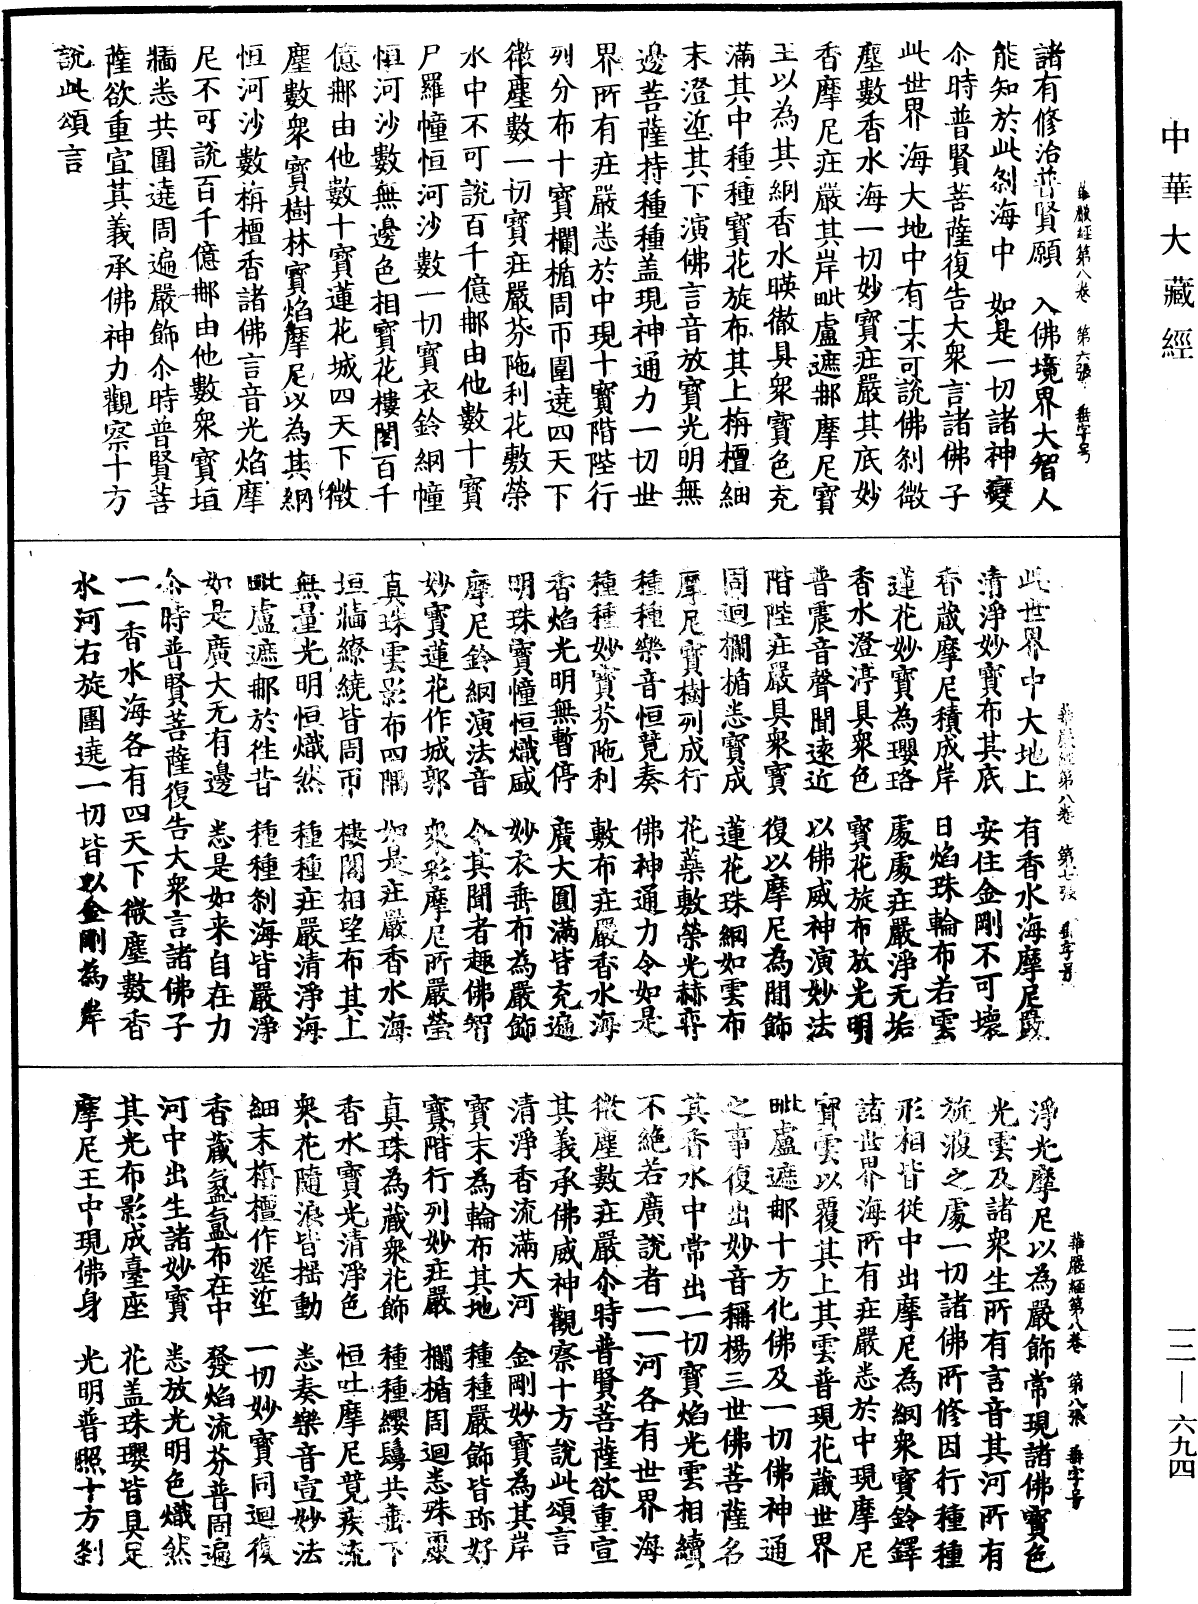 中華大藏經
諸有修治普賢願　入佛境界大智人
能知於此剎海中　如是一切諸神變
尒時普賢菩薩復告大衆言諸佛子
此世界海大地中有十不可說佛剎微
塵數香水海一切妙寶莊嚴其底妙
香摩尼莊嚴其岸毗盧遮那摩尼寶
王以為其網香水暎徹具衆寶色充
滿其中種種寶花旋布其上栴檀細
末澄垽其下演佛言音放寶光明無
邊菩薩持種種盖現神通力一切世
界所有莊嚴悉於中現十寶階陛行
列分布十寶欄楯周帀圍遶四天下
微塵數一切寶莊嚴芬陁利花敷榮
水中不可說百千億那由他數十寶
尸羅幢恒河沙數一切寶衣鈴網幢
恒河沙數無邊色相寶花樓閣百千
億那由他數十寶蓮花城四天下微
塵數衆寶樹林寶焰摩尼以為其網
恒河沙數栴檀香諸佛言音光焰摩
尼不可說百千億那由他數衆寶垣
牆悉共圍遶周遍嚴飾尒時普賢菩
薩欲重宣其義承佛神力觀察十方
說此頌言
華嚴經第八卷　第六張　垂字号
此世界中大地上　有香水海摩尼嚴
清淨妙寶布其底　安住金剛不可壞
香藏摩尼積成岸　日焰珠輪布若雲
蓮花妙寶為瓔珞　處處莊嚴淨无垢
香水澄渟具衆色　寶花旋布放光明
普震音聲聞遠近　以佛威神演妙法
階陛莊嚴具衆寶　復以摩尼為間飾
周迴欄楯悉寶成　蓮花珠網如雲布
摩尼寶樹列成行　花蘂敷榮光赫弈
種種樂音恒競奏　佛神通力令如是
種種妙寶芬陁利　敷布莊嚴香水海
香焰光明無暫停　廣大圓滿皆充遍
明珠寶幢恒熾盛　妙衣垂布為嚴飾
摩尼鈴網演法音　令其聞者趣佛智
妙寶蓮花作城郭　衆彩摩尼所嚴瑩
真珠雲影布四隅　如是莊嚴香水海
垣牆繚繞皆周帀　樓閣相望布其上
無量光明恒熾然　種種莊嚴清淨海
毗盧遮那於往昔　種種剎海皆嚴淨
如是廣大无有邊　悉是如来自在力
尒時普賢菩薩復告大衆言諸佛子
一一香水海各有四天下微塵數香
水河右旋圍遶一切皆以金剛為岸
華嚴經第八卷　第七張　垂字号
淨光摩尼以為嚴飾常現諸佛寶色
光雲及諸衆生所有言音其河所有
旋澓之處一切諸佛所修因行種種
形相皆從中出摩尼為網衆寶鈴鐸
諸世界海所有莊嚴悉於中現摩尼
寶雲以覆其上其雲普現花藏世界
毗盧遮那十方化佛及一切佛神通
之事復出妙音稱楊三世佛菩薩名
其香水中常出一切寶焰光雲相續
不絕若廣說者一一河各有世界海
微塵數莊嚴尒時普賢菩薩欲重宣
其義承佛威神觀察十方說此頌言
清淨香流滿大河　金剛妙寶為其岸
寶末為輪布其地　種種嚴飾皆珎好
寶階行列妙莊嚴　欄楯周迴悉殊麗
真珠為藏衆花飾　種種纓鬘共垂下
香水寶光清淨色　恒吐摩尼競疾流
衆花隨浪皆搖動　悉奏樂音宣妙法
細末栴檀作埿垽　一切妙寶同迴澓
香藏氳氳布在中　發焰流芬普周遍
河中出生諸妙寶　悉放光明色熾然
其光布影成臺座　花盖珠瓔皆具足
摩尼王中現佛身　光明普照十方剎
華嚴經第八卷　第八張　垂字号
一二—六九四